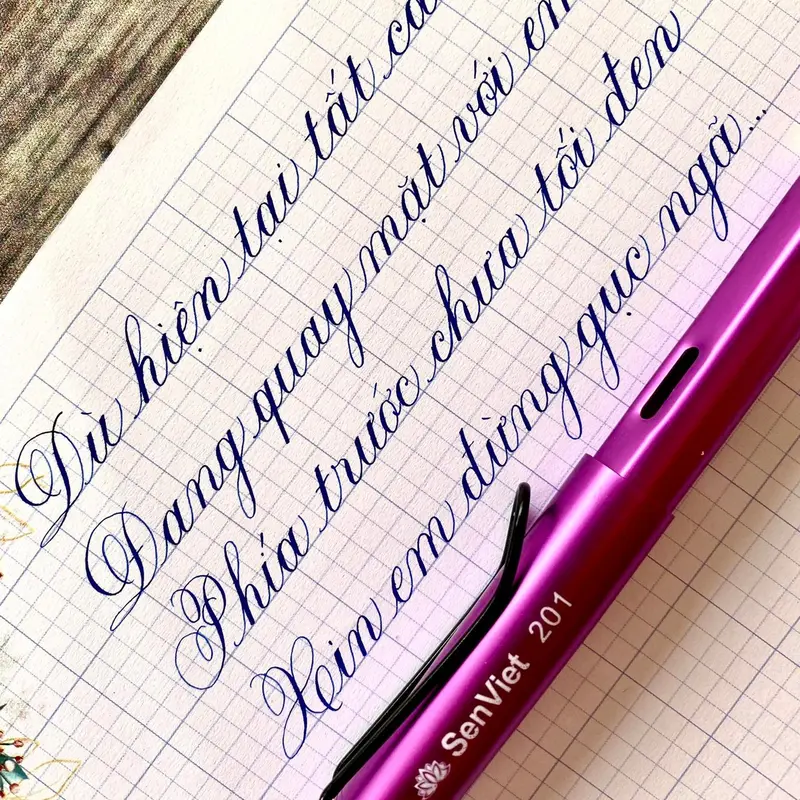 Dù hiện tại tất cả
Đang quay mặt với em
Phía trước chưa tối đen
Xin em đừng gục ngã...
SenViet 201